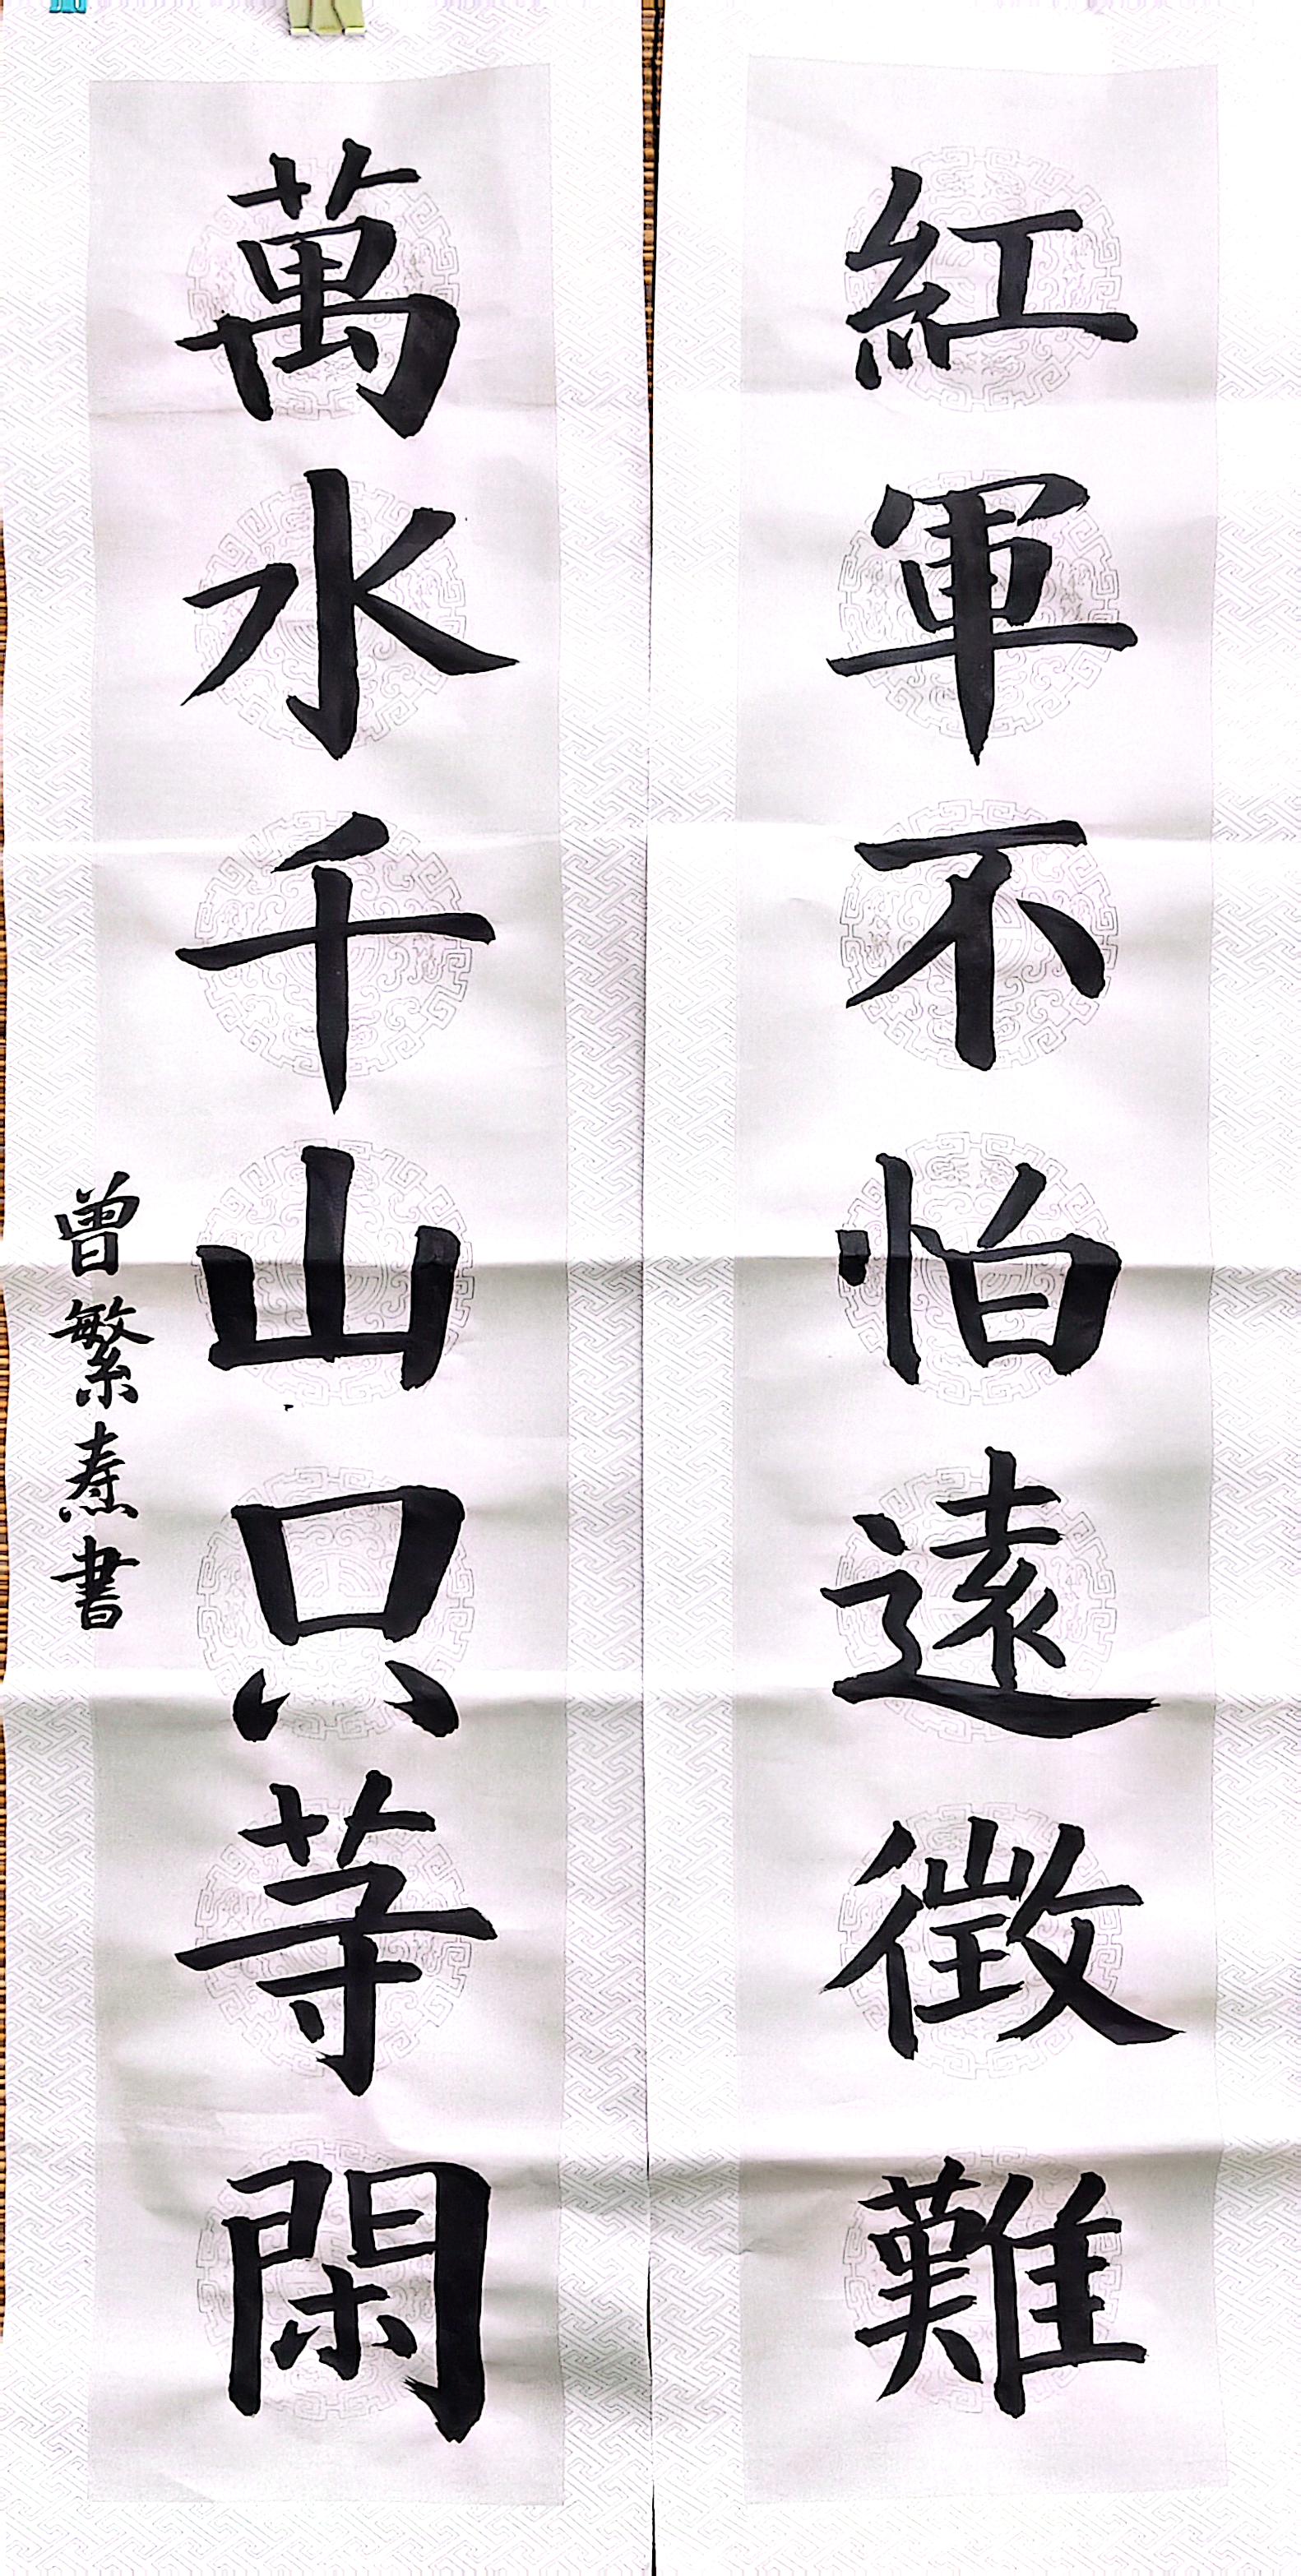 紅軍不怕遠徵難
萬水千山只等閑
曾繁焘書